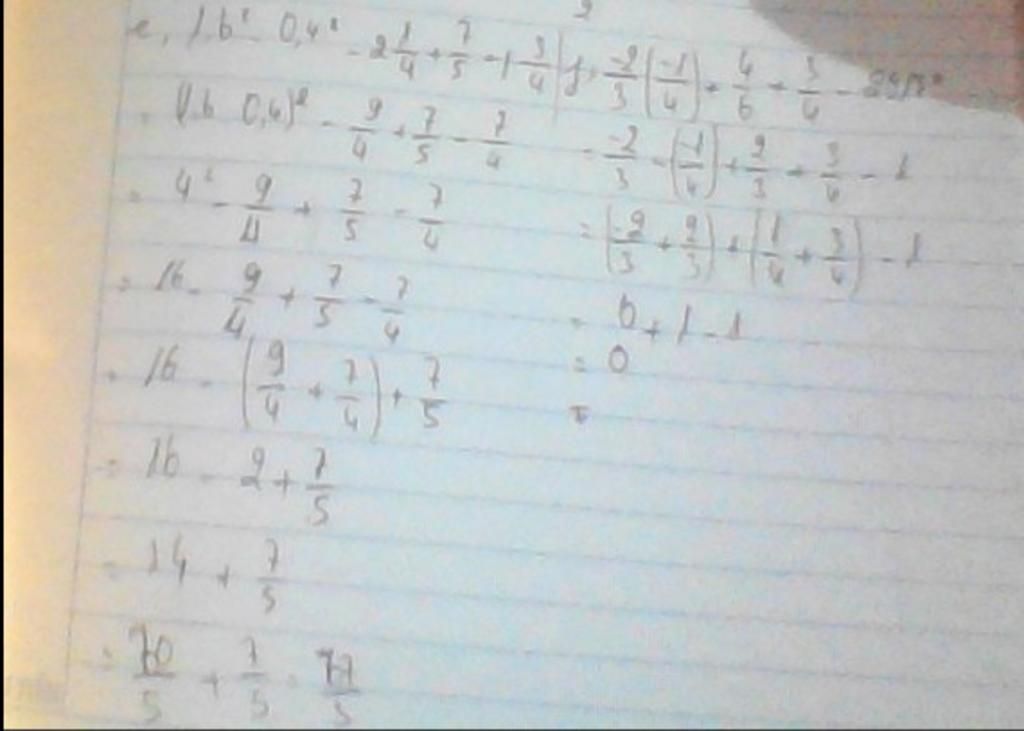 e, 1.6² 0,4² - 2 1/4 + 7/5 - 1 3/4
= (1.6 0,4)² - 9/4 + 7/5 - 7/4
= 4² - 9/4 + 7/5 - 7/4
= 16 - 9/4 + 7/5 - 7/4
= 16 - (9/4 + 7/4) + 7/5
= 16 - 2 + 7/5
= 14 + 7/5
= 70/5 + 7/5 = 77/5
f, -2/3 (-1/4) + 4/6 + 3/4 -
= -2/3 - (-1/4) + 2/3 + 3/4 - 1
= (-2/3 + 2/3) + (1/4 + 3/4) - 1
= 0 + 1 - 1
= 0
=